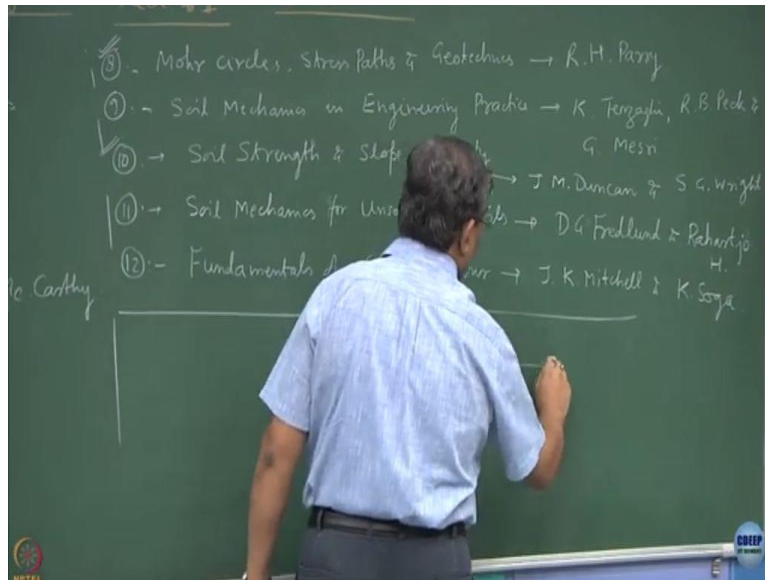 8 :- Mohr circles, Stress Paths & Geotechnics → R. H. Parry
9 :- Soil Mechanics in Engineering Practice → K. Terzaghi, R. B. Peck &
G. Mesri
10 → Soil Strength & Slope → J M. Duncan & S G. Wright
11 :→ Soil Mechanics for → D G Fredlund & Rahartjo
H.
12 :- Fundamentals → J. K. Mitchell & K. Soga
Mc. Carthy
NPTEL
CDEEP
IIT BOMBAY